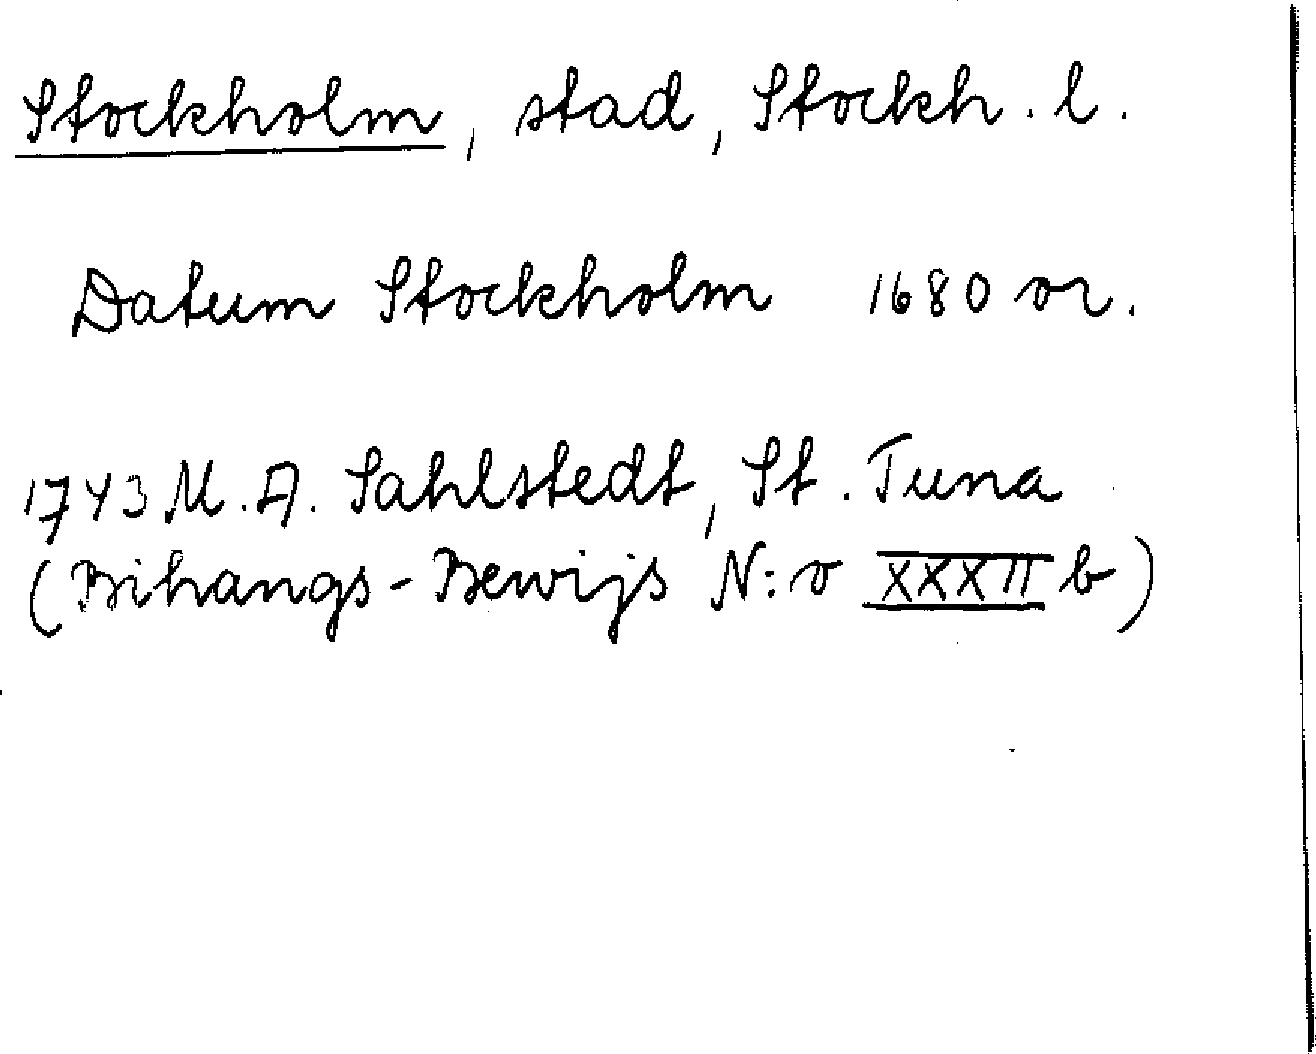 Stockholm, stad, Stockh. l.
Datum Stockholm 1680 or.
1743 M. A. Sahlstedt, St. Tuna
(Bihangs-Bewijs N:o XXXII b)